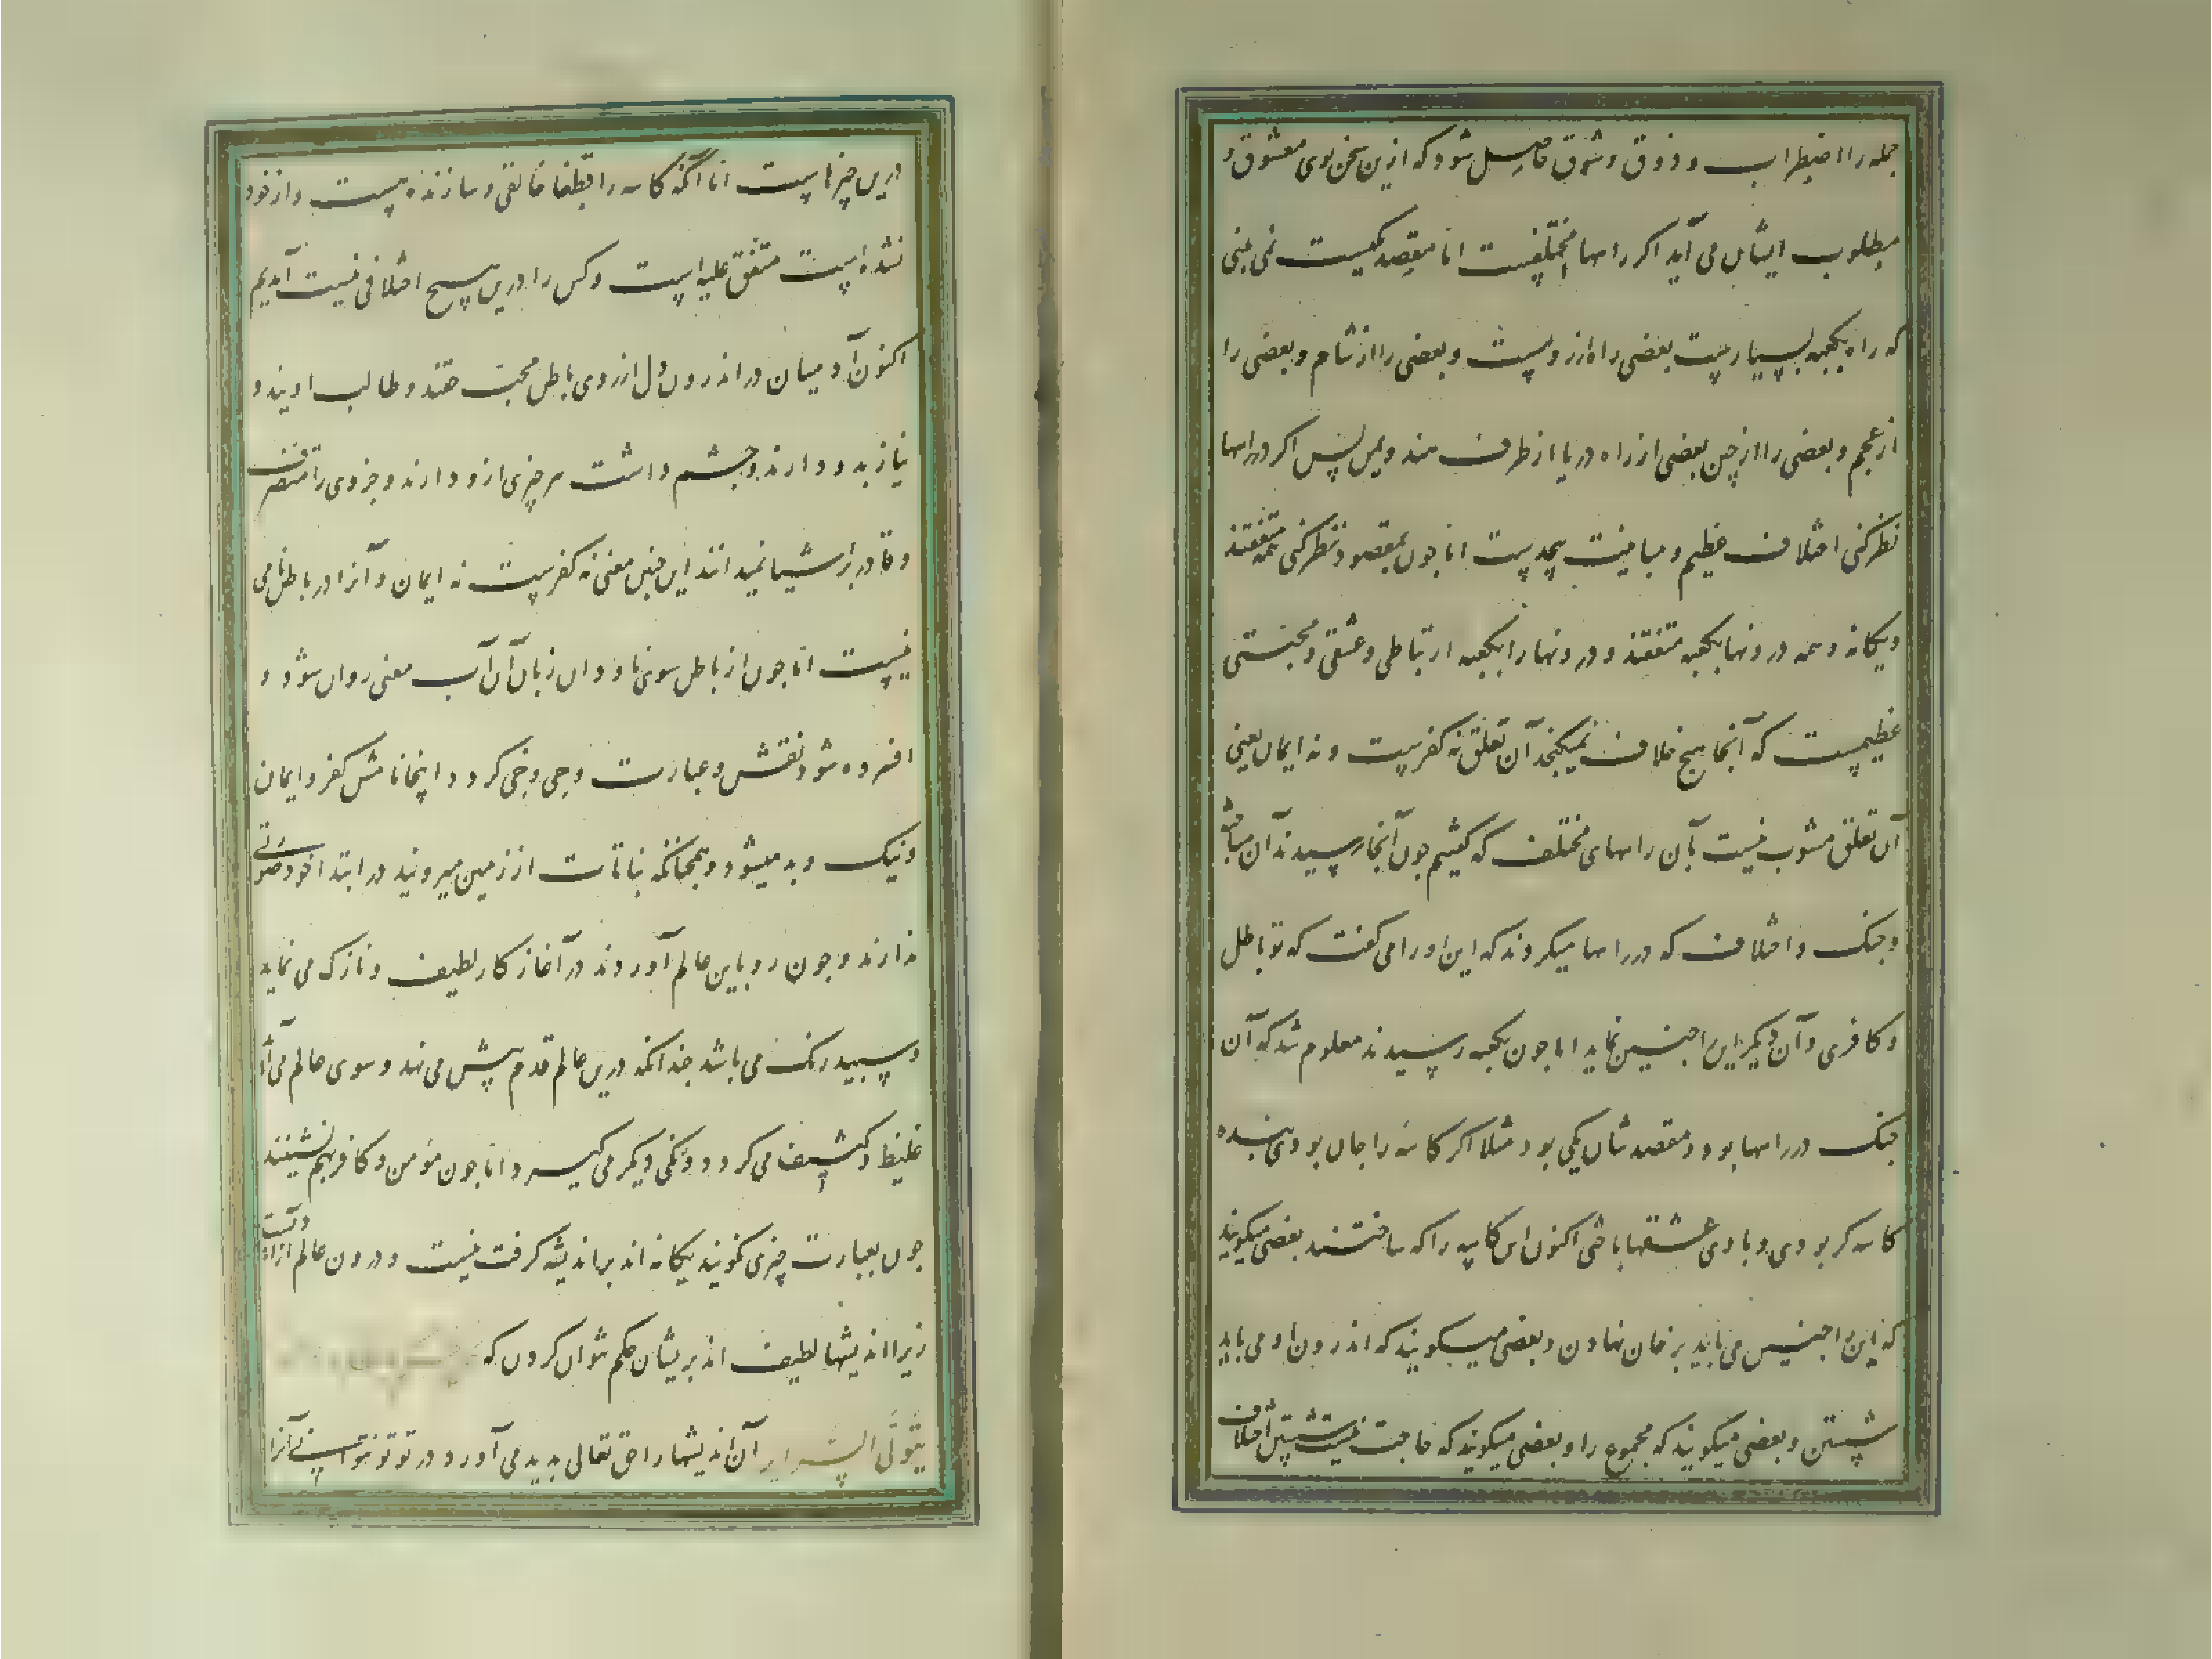 جمله را اضطراب و ذوق و شوق حاصل شود که ازین سخن بوی معشوق و
مطلوب ایشان می آید اکر راهها مختلفست اما مقصد یکیست نمی بینی
که راه بکعبه بسیارست بعضی را راه از رومست و بعضی را از شام و بعضی را
از عجم و بعضی را از چین و بعضی از راه دریا از طرف هند و یمن پس اکر در راهها
نظر کنی اختلاف عظیم و مباینت بیحدست اما چون بمقصود نظر کنی همه متفقند
و یکانه و همه درونها بکعبه متفقند و درونها را بکعبه ارتباطی و عشقی و محبتی
عظیمست که آنجا هیچ خلاف نمیکنجد آن تعلق نه کفرست و نه ایمان یعنی
آن تعلق مشوب نیست بآن راههای مختلف که کفتیم چون آنجا رسیدند آن مباحثه
و جنک و اختلاف که در راهها میکردند که این او را می کفت که تو باطلی
و کافری و آن دیکر این را چنین نماید اما چون بکعبه رسیدند معلوم شد که آن
جنک در راهها بود و مقصدشان یکی بود مثلا اکر کاسه را جان بودی بنده
کاسه کر بودی و با وی عشقها باختی اکنون این کاسه را که ساختند بعضی میکویند
که این را چنین می باید بر خوان نهادن و بعضی میکویند که اندرون او می باید
شستن و بعضی میکویند که مجموع را و بعضی میکویند که حاجت نیست شستن اختلاف
درین چیزهاست اما آنکه کاسه را قطعا خالقی و سازنده هست و از خود
نشده است متفق علیه است و کس را درین هیچ اختلافی نیست آمدیم
اکنون آدمیان در اندرون دل از روی باطن محب حقند و طالب اویند و
نیاز بدو دارند و چشم داشت هر چیزی ازو دارند و جز وی را متصرف
و قادر بر اشیا نمیدانند این چنین معنی نه کفرست نه ایمان و آنرا در باطن نامی
نیست اما چون از باطن سوی ناودان زبان آن آب معنی روان شود و
افسرده شود نقش و عبارت وحی وخی کردد اینجا نامش کفر و ایمان
و نیک و بد میشود و همچنانکه نباتات از زمین میرویند در ابتدا خود صورتی
ندارند و چون رو باین عالم آوردند در آغاز کار لطیف و نازک می نماید
و سپید رنک می باشد چندانکه درین عالم قدم پیش می نهد و سوی عالم می آید
غلیظ و کثیف می کردد و رنکی دیکر می کیرد اما چون مؤمن و کافر بهم نشینند
چون بعبارت چیزی نکویند یکانه اند بر اندیشه کرفت نیست و درون عالم آزادیست
زیرا اندیشها لطیف اند بر ایشان حکم نتوان کردن که
یتولی السرایر آن اندیشها را حق تعالی پدید می آورد در تو تو نتوانی آنرا